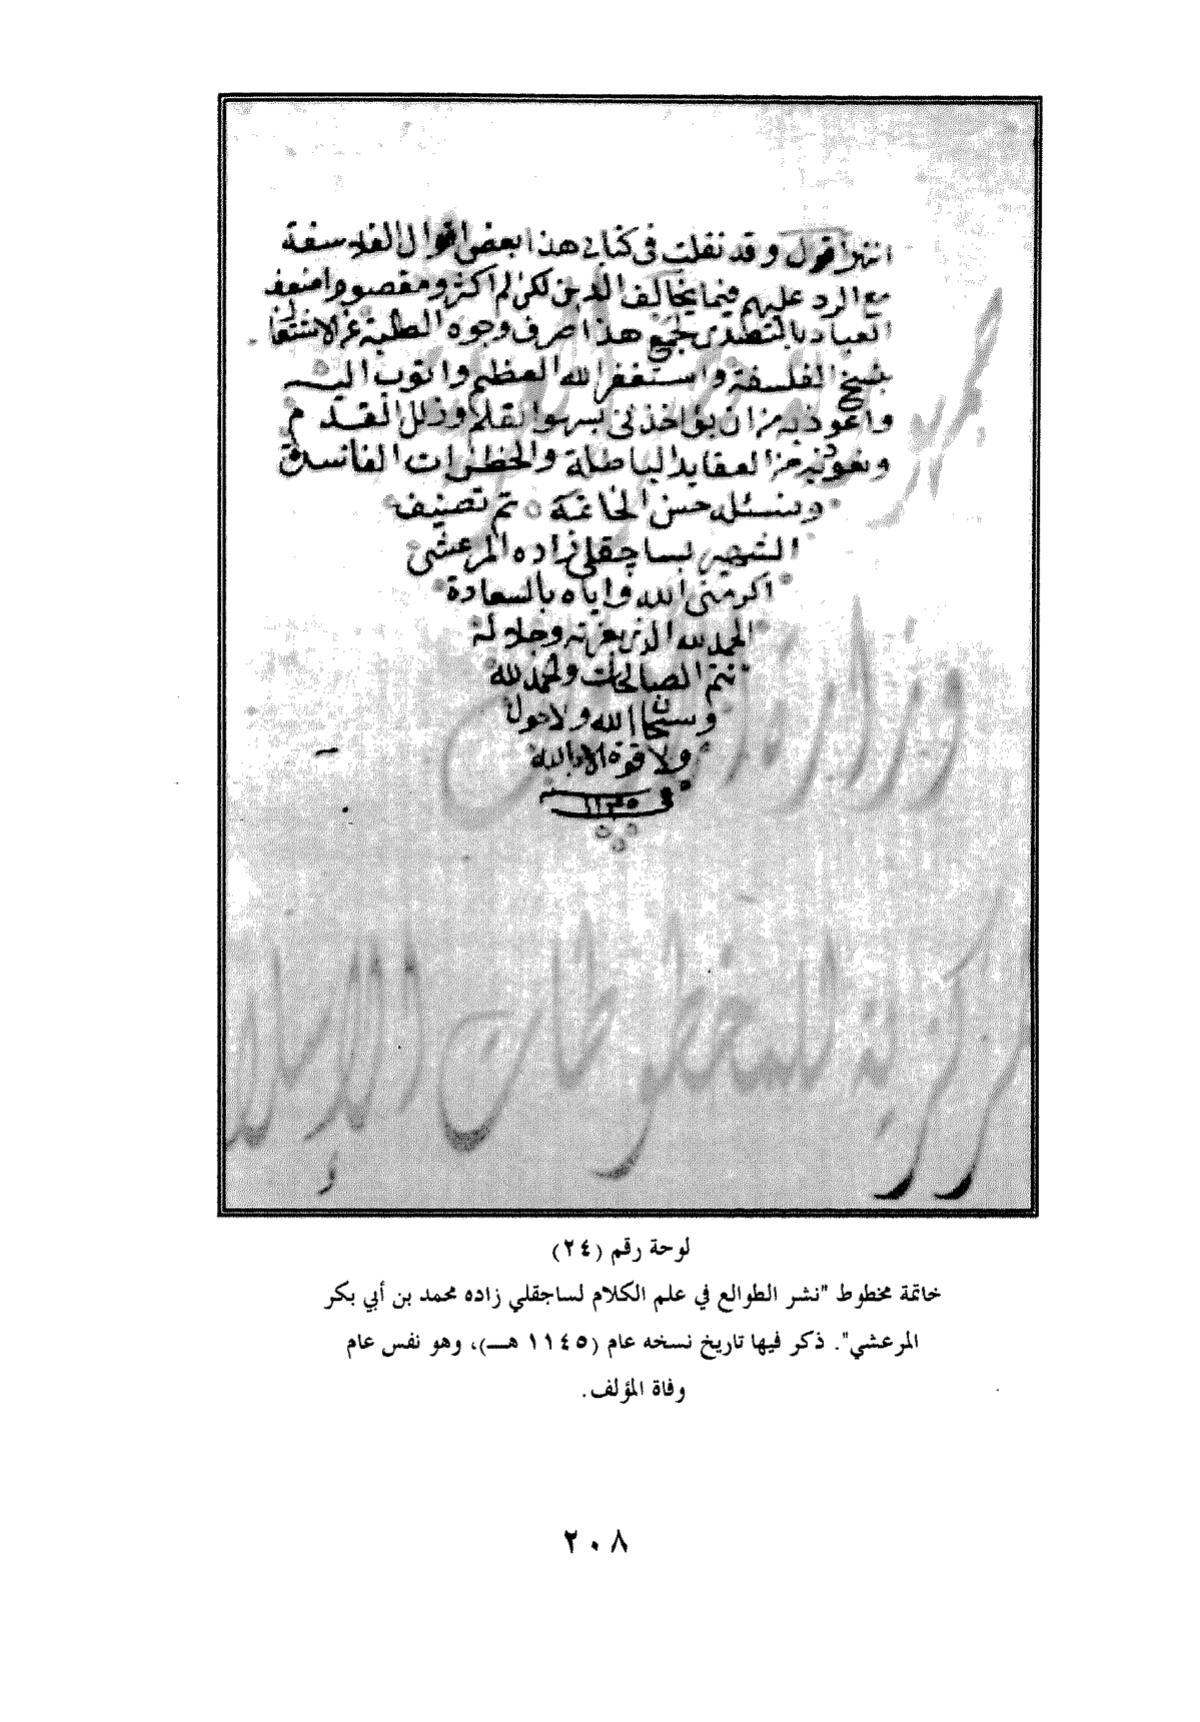 انتهى اقول وقد نقلت فى كتابى هذا بعض اقوال الفلاسفة
مع الرد عليهم فيما يخالف الدين لكن لم اكثر و مقصودى اضعف
العباد بالتصدى لجمع هذا صرف وجوه الطلبة عن الاشتغال
بنسخ الفلسفة واستغفر الله العظيم واتوب اليه
واعوذ به من ان يؤاخذنى بسهو القلم وزلل القدم
ونعوذ به من العقايد الباطلة والخطرات الفاسدة
ونسئله حسن الخاتمة تم تصنيف
الشهير بساچقلى زاده المرعشى
اكرمنى الله واياه بالسعادة
الحمد لله الذى بعزته وجلاله
تتم الصالحات والحمد لله
وسبحان الله ولا حول
ولا قوة الا بالله
فى
وزارة
المركزية للمخطوطات الإسلا
لوحة رقم (٢٤)
خاتمة مخطوط "نشر الطوالع في علم الكلام لساجقلي زاده محمد بن أبي بكر
المرعشي". ذكر فيها تاريخ نسخه عام (١١٤٥ هـــ)، وهو نفس عام
وفاة المؤلف.
٢٠٨